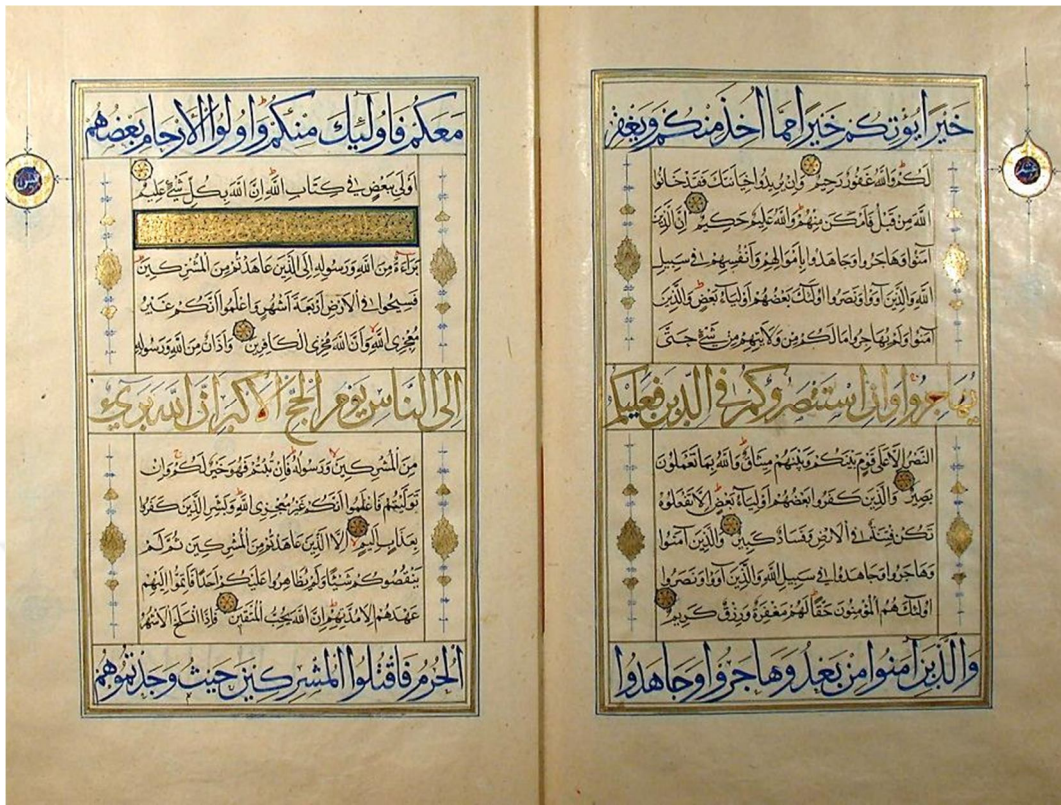 خَيْرًا يُؤْتِكُمْ خَيْرًا مِمَّا أُخِذَ مِنْكُمْ وَيَغْفِرْ
لَكُمْ وَاللَّهُ غَفُورٌ رَحِيمٌ وَإِنْ يُرِيدُوا خِيَانَتَكَ فَقَدْ خَانُوا
اللَّهَ مِنْ قَبْلُ فَأَمْكَنَ مِنْهُمْ وَاللَّهُ عَلِيمٌ حَكِيمٌ إِنَّ الَّذِينَ
آمَنُوا وَهَاجَرُوا وَجَاهَدُوا بِأَمْوَالِهِمْ وَأَنْفُسِهِمْ فِي سَبِيلِ
اللَّهِ وَالَّذِينَ آوَوْا وَنَصَرُوا أُولَئِكَ بَعْضُهُمْ أَوْلِيَاءُ بَعْضٍ وَالَّذِينَ
آمَنُوا وَلَمْ يُهَاجِرُوا مَا لَكُمْ مِنْ وَلَايَتِهِمْ مِنْ شَيْءٍ حَتَّى
يُهَاجِرُوا وَإِنِ اسْتَنْصَرُوكُمْ فِي الدِّينِ فَعَلَيْكُمُ
النَّصْرُ إِلَّا عَلَى قَوْمٍ بَيْنَكُمْ وَبَيْنَهُمْ مِيثَاقٌ وَاللَّهُ بِمَا تَعْمَلُونَ
بَصِيرٌ وَالَّذِينَ كَفَرُوا بَعْضُهُمْ أَوْلِيَاءُ بَعْضٍ إِلَّا تَفْعَلُوهُ
تَكُنْ فِتْنَةٌ فِي الْأَرْضِ وَفَسَادٌ كَبِيرٌ وَالَّذِينَ آمَنُوا
وَهَاجَرُوا وَجَاهَدُوا فِي سَبِيلِ اللَّهِ وَالَّذِينَ آوَوْا وَنَصَرُوا
أُولَئِكَ هُمُ الْمُؤْمِنُونَ حَقًّا لَهُمْ مَغْفِرَةٌ وَرِزْقٌ كَرِيمٌ
وَالَّذِينَ آمَنُوا مِنْ بَعْدُ وَهَاجَرُوا وَجَاهَدُوا
مَعَكُمْ فَأُولَئِكَ مِنْكُمْ وَأُولُوا الْأَرْحَامِ بَعْضُهُمْ
أَوْلَى بِبَعْضٍ فِي كِتَابِ اللَّهِ إِنَّ اللَّهَ بِكُلِّ شَيْءٍ عَلِيمٌ
بَرَاءَةٌ مِنَ اللَّهِ وَرَسُولِهِ إِلَى الَّذِينَ عَاهَدْتُمْ مِنَ الْمُشْرِكِينَ
فَسِيحُوا فِي الْأَرْضِ أَرْبَعَةَ أَشْهُرٍ وَاعْلَمُوا أَنَّكُمْ غَيْرُ
مُعْجِزِي اللَّهِ وَأَنَّ اللَّهَ مُخْزِي الْكَافِرِينَ وَأَذَانٌ مِنَ اللَّهِ وَرَسُولِهِ
إِلَى النَّاسِ يَوْمَ الْحَجِّ الْأَكْبَرِ أَنَّ اللَّهَ بَرِيءٌ
مِنَ الْمُشْرِكِينَ وَرَسُولُهُ فَإِنْ تُبْتُمْ فَهُوَ خَيْرٌ لَكُمْ وَإِنْ
تَوَلَّيْتُمْ فَاعْلَمُوا أَنَّكُمْ غَيْرُ مُعْجِزِي اللَّهِ وَبَشِّرِ الَّذِينَ كَفَرُوا
بِعَذَابٍ أَلِيمٍ إِلَّا الَّذِينَ عَاهَدْتُمْ مِنَ الْمُشْرِكِينَ ثُمَّ لَمْ
يَنْقُصُوكُمْ شَيْئًا وَلَمْ يُظَاهِرُوا عَلَيْكُمْ أَحَدًا فَأَتِمُّوا إِلَيْهِمْ
عَهْدَهُمْ إِلَى مُدَّتِهِمْ إِنَّ اللَّهَ يُحِبُّ الْمُتَّقِينَ فَإِذَا انْسَلَخَ الْأَشْهُرُ
الْحُرُمُ فَاقْتُلُوا الْمُشْرِكِينَ حَيْثُ وَجَدْتُمُوهُمْ